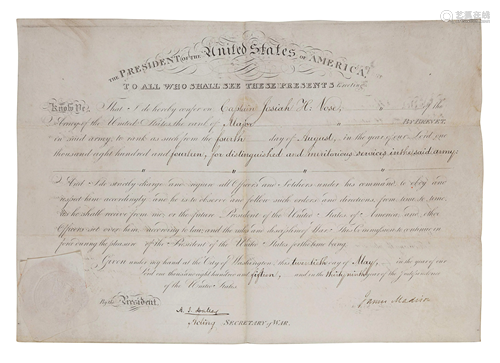 THE PRESIDENT OF THE United States OF AMERICA,
TO ALL WHO SHALL SEE THESE PRESENTS Greeting:
Know Ye, That I do hereby confer on Captain Josiah H. Vose, of the
Army of the United States, the rank of Major BY BREVET
in said army, to rank as such from the fourth day of August, in the year of our Lord one
thousand eight hundred and fourteen, for distinguished and meritorious services in the said army
And I do strictly charge and require all Officers and Soldiers under his command, to obey and
respect him accordingly: and he is to observe and follow such orders and directions, from time to time,
as he shall receive from me, or the future President of the United States of America, and other
Officers set over him, according to law, and the rules and discipline of War. This Commission to continue in
force during the pleasure of the President of the United States for the time being.
Given under my hand at the City of Washington, this day of May, in the year of our
Lord one thousand eight hundred and fifteen, and in the thirty ninth year of the Independence
of the United States.
By the President.
James Madison
Acting SECRETARY OF WAR.